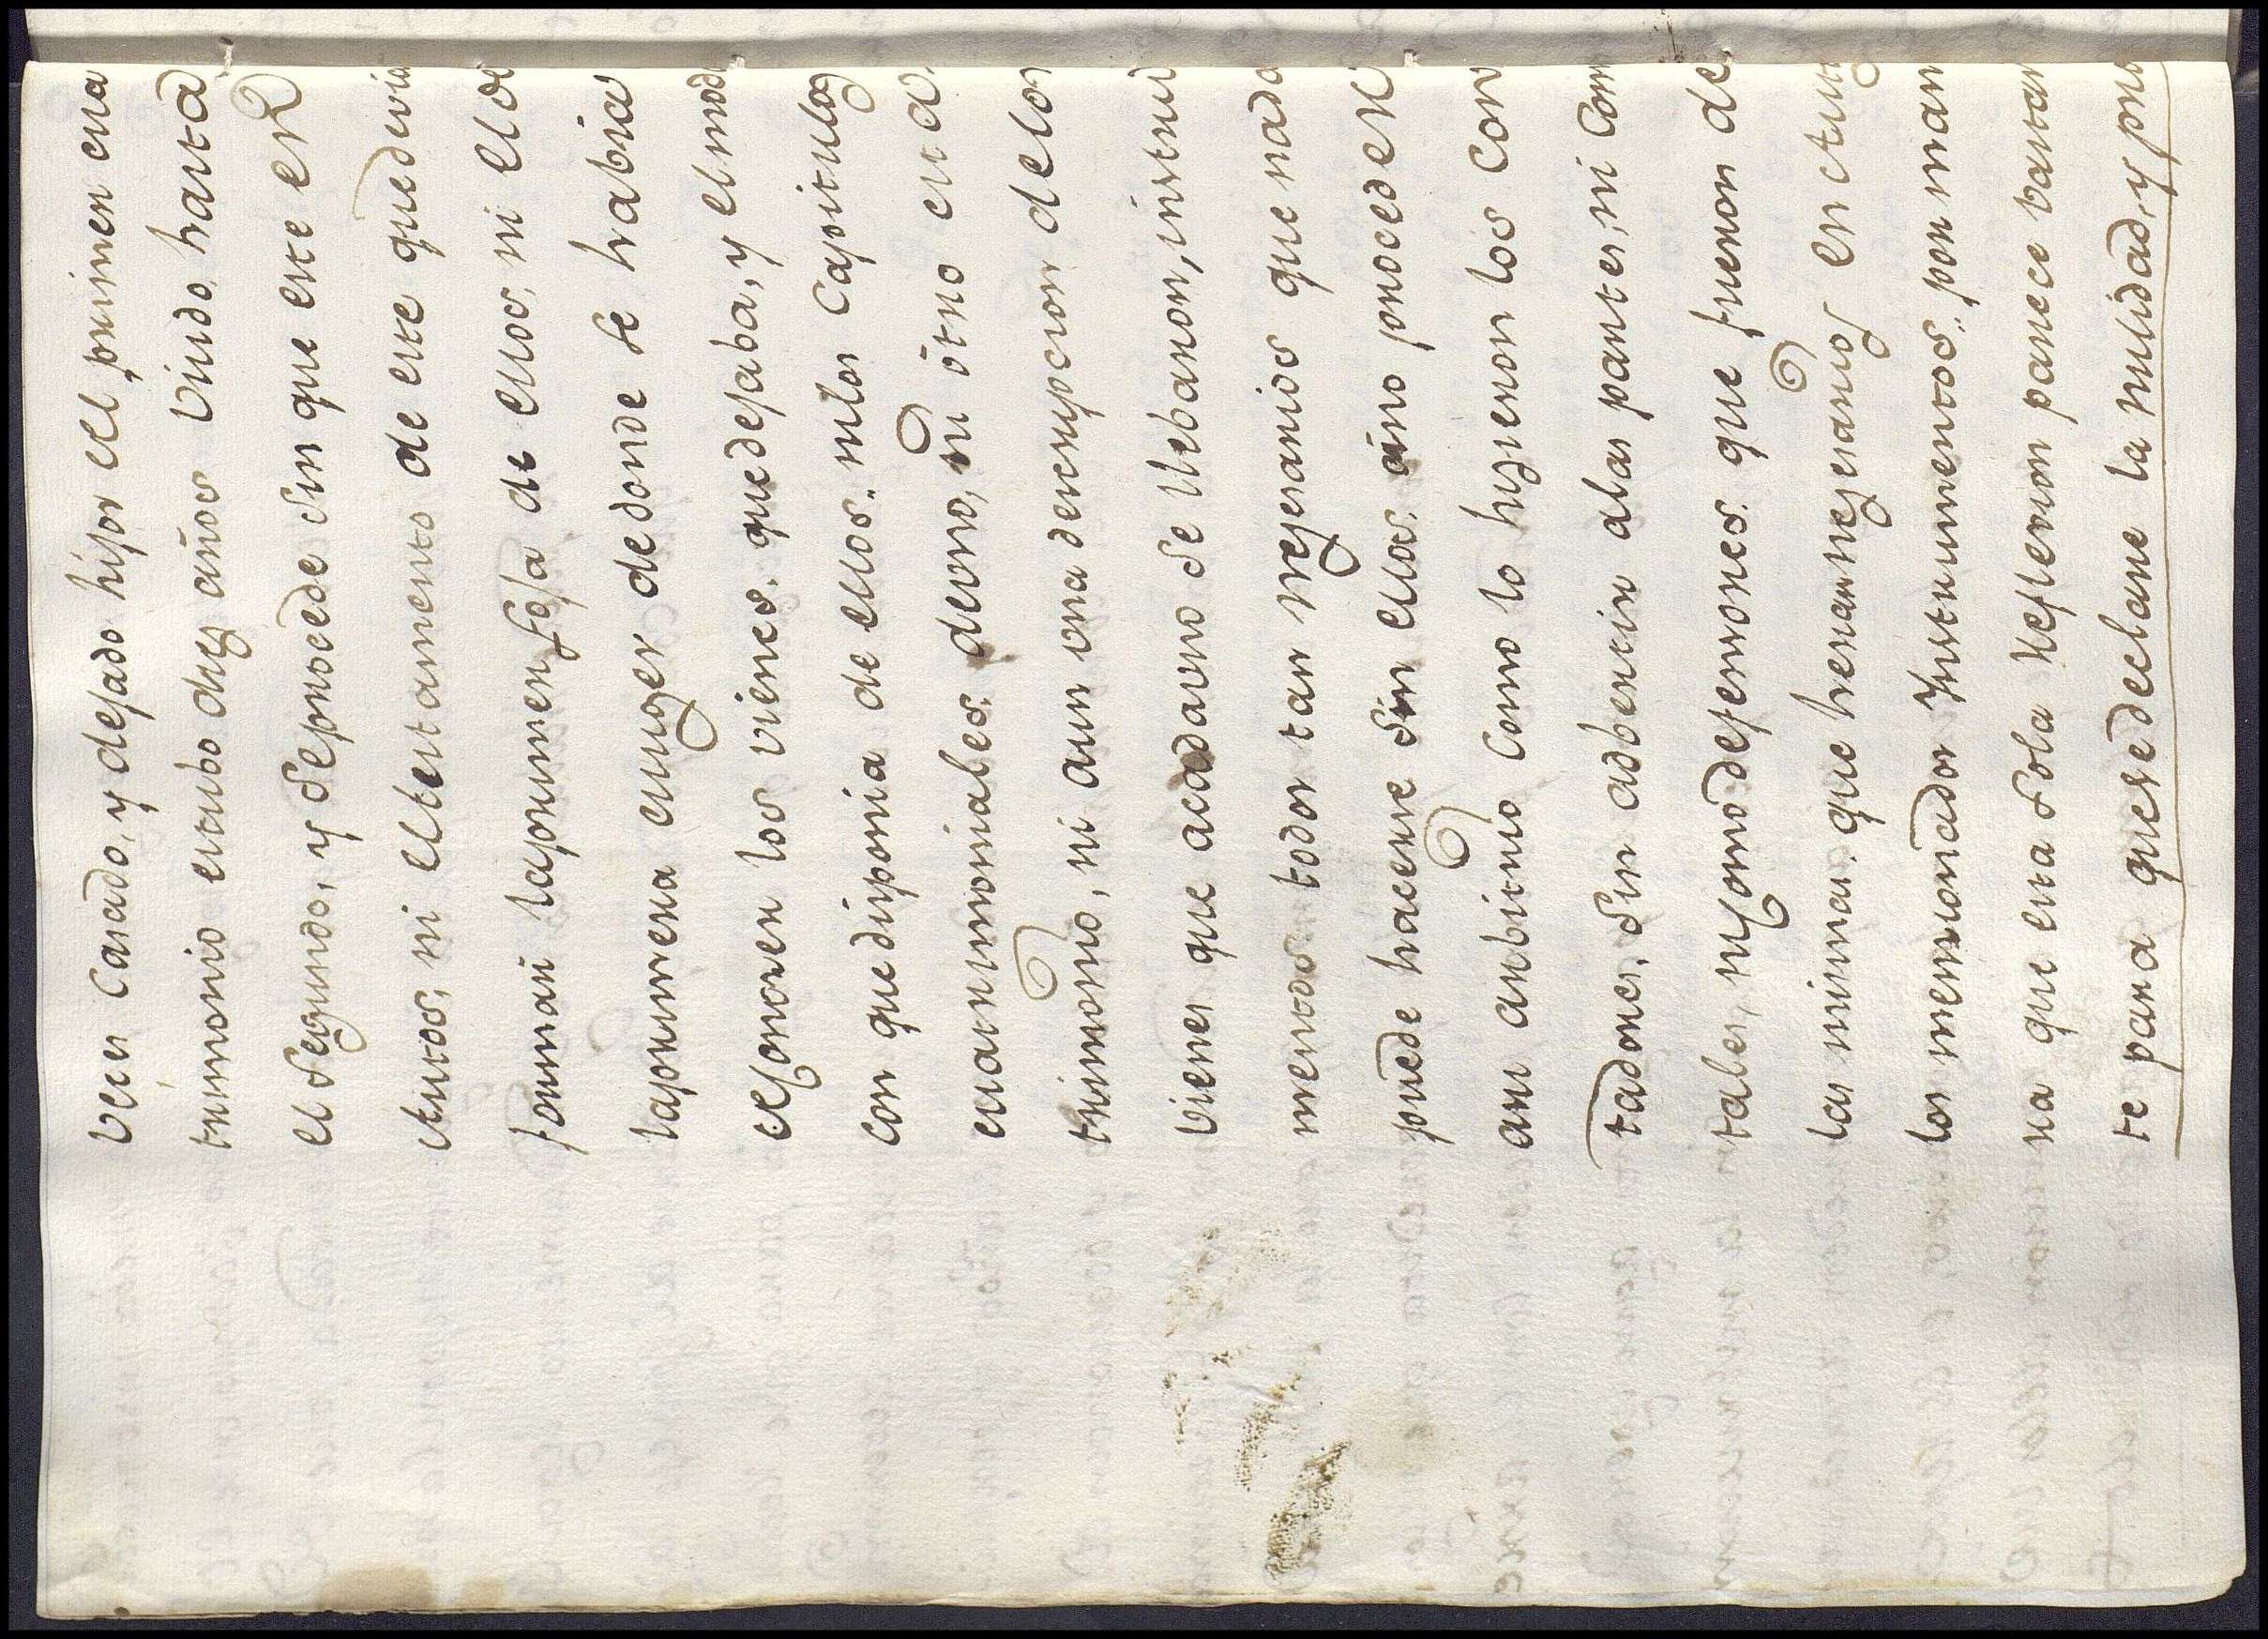 veces Casado, y dejado hijos el primer ma
trimonio estubo diez años viudo, hasta
el segundo, y se procede sin que este en
Autos, ni el testamento de este que devia
formar la primera fosa de ellos, ni el de
la primera muger de donde se habria
el Conocer los vienes, que dejaba, y el modo
con que disponia de ellos, ni los Capitulos
matrimoniales, de uno, ni otro ma
trimonio, ni aun una descripcion de los
vienes que a cada uno se llebaron, instru
mentos todos tan necesarios que nada
puede hacerse sin ellos, sino proceder
a su arbitrio como lo hizieron los Con
tadores, sin adbertir a las partes, ni Com
las mismas, que heran necesarios en Autos
los mencionados Instrumentos, por man
ra que esta sola reflexion parece bastan
te para que se declare la nulidad, y por